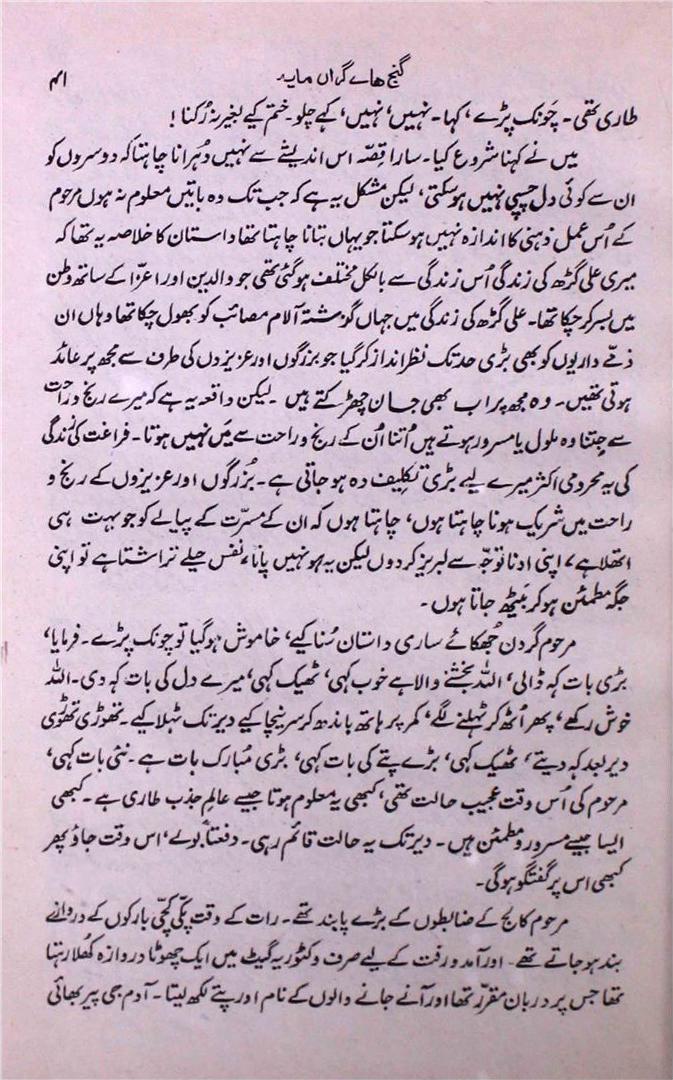 گنج ھاے گراں مایہ
۴۱
طاری تھی۔ چونک پڑے، کہا۔ نہیں، نہیں، کہے چلو۔ ختم کیے بغیر نہ رُکنا!
میں نے کہنا شروع کیا۔ سارا قِصّہ اس اندیشے سے نہیں دُہرانا چاہتا کہ دوسروں کو
ان سے کوئی دل چسپی نہیں ہو سکتی، لیکن مشکل یہ ہے کہ جب تک وہ باتیں معلوم نہ ہوں مرحوم
کے اُس عملِ ذہنی کا اندازہ نہیں ہو سکتا جو یہاں بتانا چاہتا تھا داستان کا خلاصہ یہ تھا کہ
میری علی گڑھ کی زندگی اُس زندگی سے بالکل مختلف ہو گئی تھی جو والدین اور اعزّا کے ساتھ وطن
میں بسر کر چکا تھا۔ علی گڑھ کی زندگی میں جہاں گزشتہ آلام مصائب کو بھول چکا تھا وہاں ان
ذمّے داریوں کو بھی بڑی حد تک نظر انداز کر گیا جو بزرگوں اور عزیزوں کی طرف سے مجھ پر عائد
ہوتی تھیں۔ وہ مجھ پر اب بھی جان چھڑکتے ہیں ۔لیکن واقعہ یہ ہے کہ میرے رنج و راحت
سے جتنا وہ ملول یا مسرور ہوتے ہیں اُتنا اُن کے رنج و راحت سے مَیں نہیں ہوتا۔ فراغت کی زندگی
کی یہ محرومی اکثر میرے لیے بڑی تکلیف دہ ہو جاتی ہے۔ بزُرگوں اور عزیزوں کے رنج و
راحت میں شریک ہونا چاہتا ہوں، چاہتا ہوں کہ ان کے مسرّت کے پیالے کو جو بہت ہی
اتھلا ہے، اپنی ادنا توجّہ سے لبریز کر دوں لیکن یہ ہو نہیں پاتا، نفس حیلے تراشتا ہے تو اپنی
جگہ مطمئن ہو کر بَیٹھ جاتا ہوں۔
مرحوم گردن جُھکائے ساری داستان سُنا کیے، خاموش ہو گیا تو چونک پڑے۔ فرمایا،
بڑی بات کہہ ڈالی، اللہ بخشنے والا ہے خوب کہی، ٹھیک کہی، میرے دل کی بات کہہ دی۔ اللہ
خوش رکھے، پھر اُٹھ کر ٹہلنے لگے، کمر پر ہاتھ باندھ کر سر نیچا کیے دیر تک ٹہلا کیے۔ تھوڑی تھوڑی
دیر بعد کہہ دیتے، ٹھیک کہی، بڑے پتے کی بات کہی، بڑی مُبارک بات ہے۔ نئی بات کہی،
مرحوم کی اُس وقت عجیب حالت تھی، کبھی یہ معلوم ہوتا جیسے عالمِ جذب طاری ہے۔ کبھی
ایسا جیسے مسرور و مطمئن ہیں۔ دیر تک یہ حالت قائم رہی۔ دفعتاً بولے، اس وقت جاؤ پھر
کبھی اس پر گفتگو ہوگی۔
مرحوم کالج کے ضابطوں کے بڑے پابند تھے۔ رات کے وقت پکّی کچّی بارکوں کے دروازے
بند ہو جاتے تھے۔ اور آمد و رفت کے لیے صرف وکٹوریہ گیٹ میں ایک چھوٹا دروازہ کُھلا رہتا
تھا جس پر دربان مقرّر تھا اور آنے جانے والوں کے نام اور پتے لکھ لیتا۔ آدم جی پیر بھائی